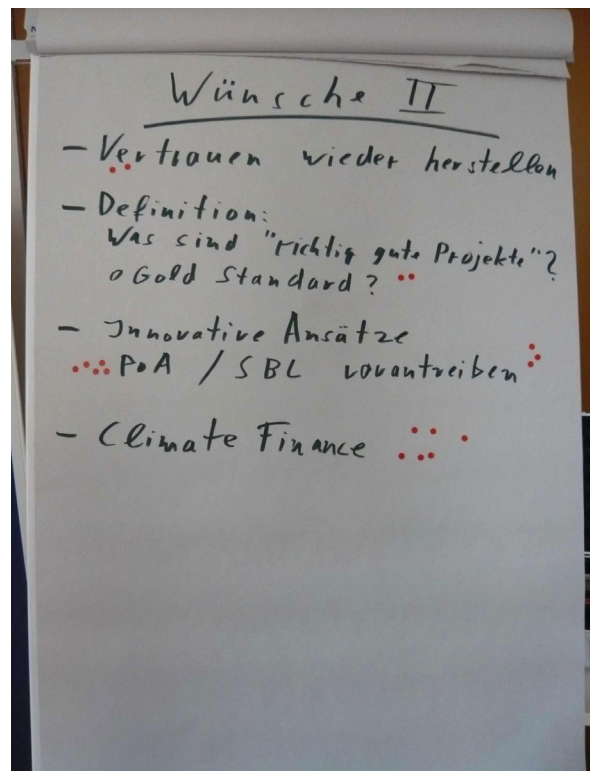 Wünsche II
- Vertrauen wieder herstellen
- Definition:
Was sind "richtig gute Projekte"?
o Gold Standard?
- Innovative Ansätze
PoA / SBL vorantreiben
- Climate Finance